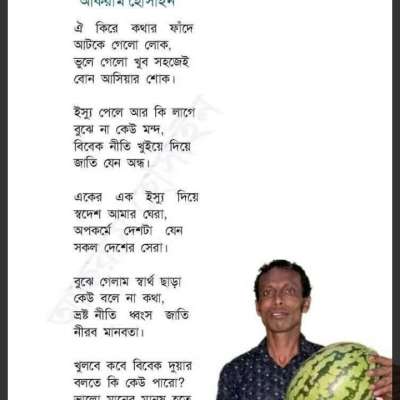 আকরাম হোসাইন
ঐ কিরে কথার ফাঁদে
আটকে গেলো লোক,
ভুলে গেলো খুব সহজেই
বোন আসিয়ার শোক।
ইস্যু পেলে আর কি লাগে
বুঝে না কেউ মন্দ,
বিবেক নীতি খুইয়ে দিয়ে
জাতি যেন অন্ধ।
একের এক ইস্যু দিয়ে
স্বদেশ আমার ঘেরা,
অপকর্মে দেশটা যেন
সকল দেশের সেরা।
বুঝে গেলাম স্বার্থ ছাড়া
কেউ বলে না কথা,
ভ্রষ্ট নীতি ধ্বংস জাতি
নীরব মানবতা।
খুলবে কবে বিবেক দুয়ার
বলতে কি কেউ পারো?
ভালো মানের মানুষ হতে